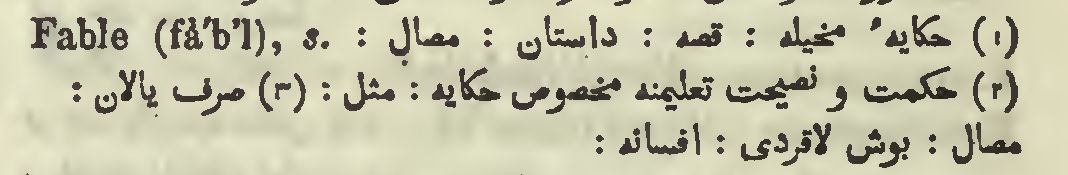 Fable (fā′b’l), s. : (١) حكایهٔ مخیله : قصه : داستان : مصال :
(٢) حكمت و نصیحت تعلیمنه مخصوص حكایه : مثل : (٣) صرف یالان :
مصال : بوش لاقردی : افسانه :